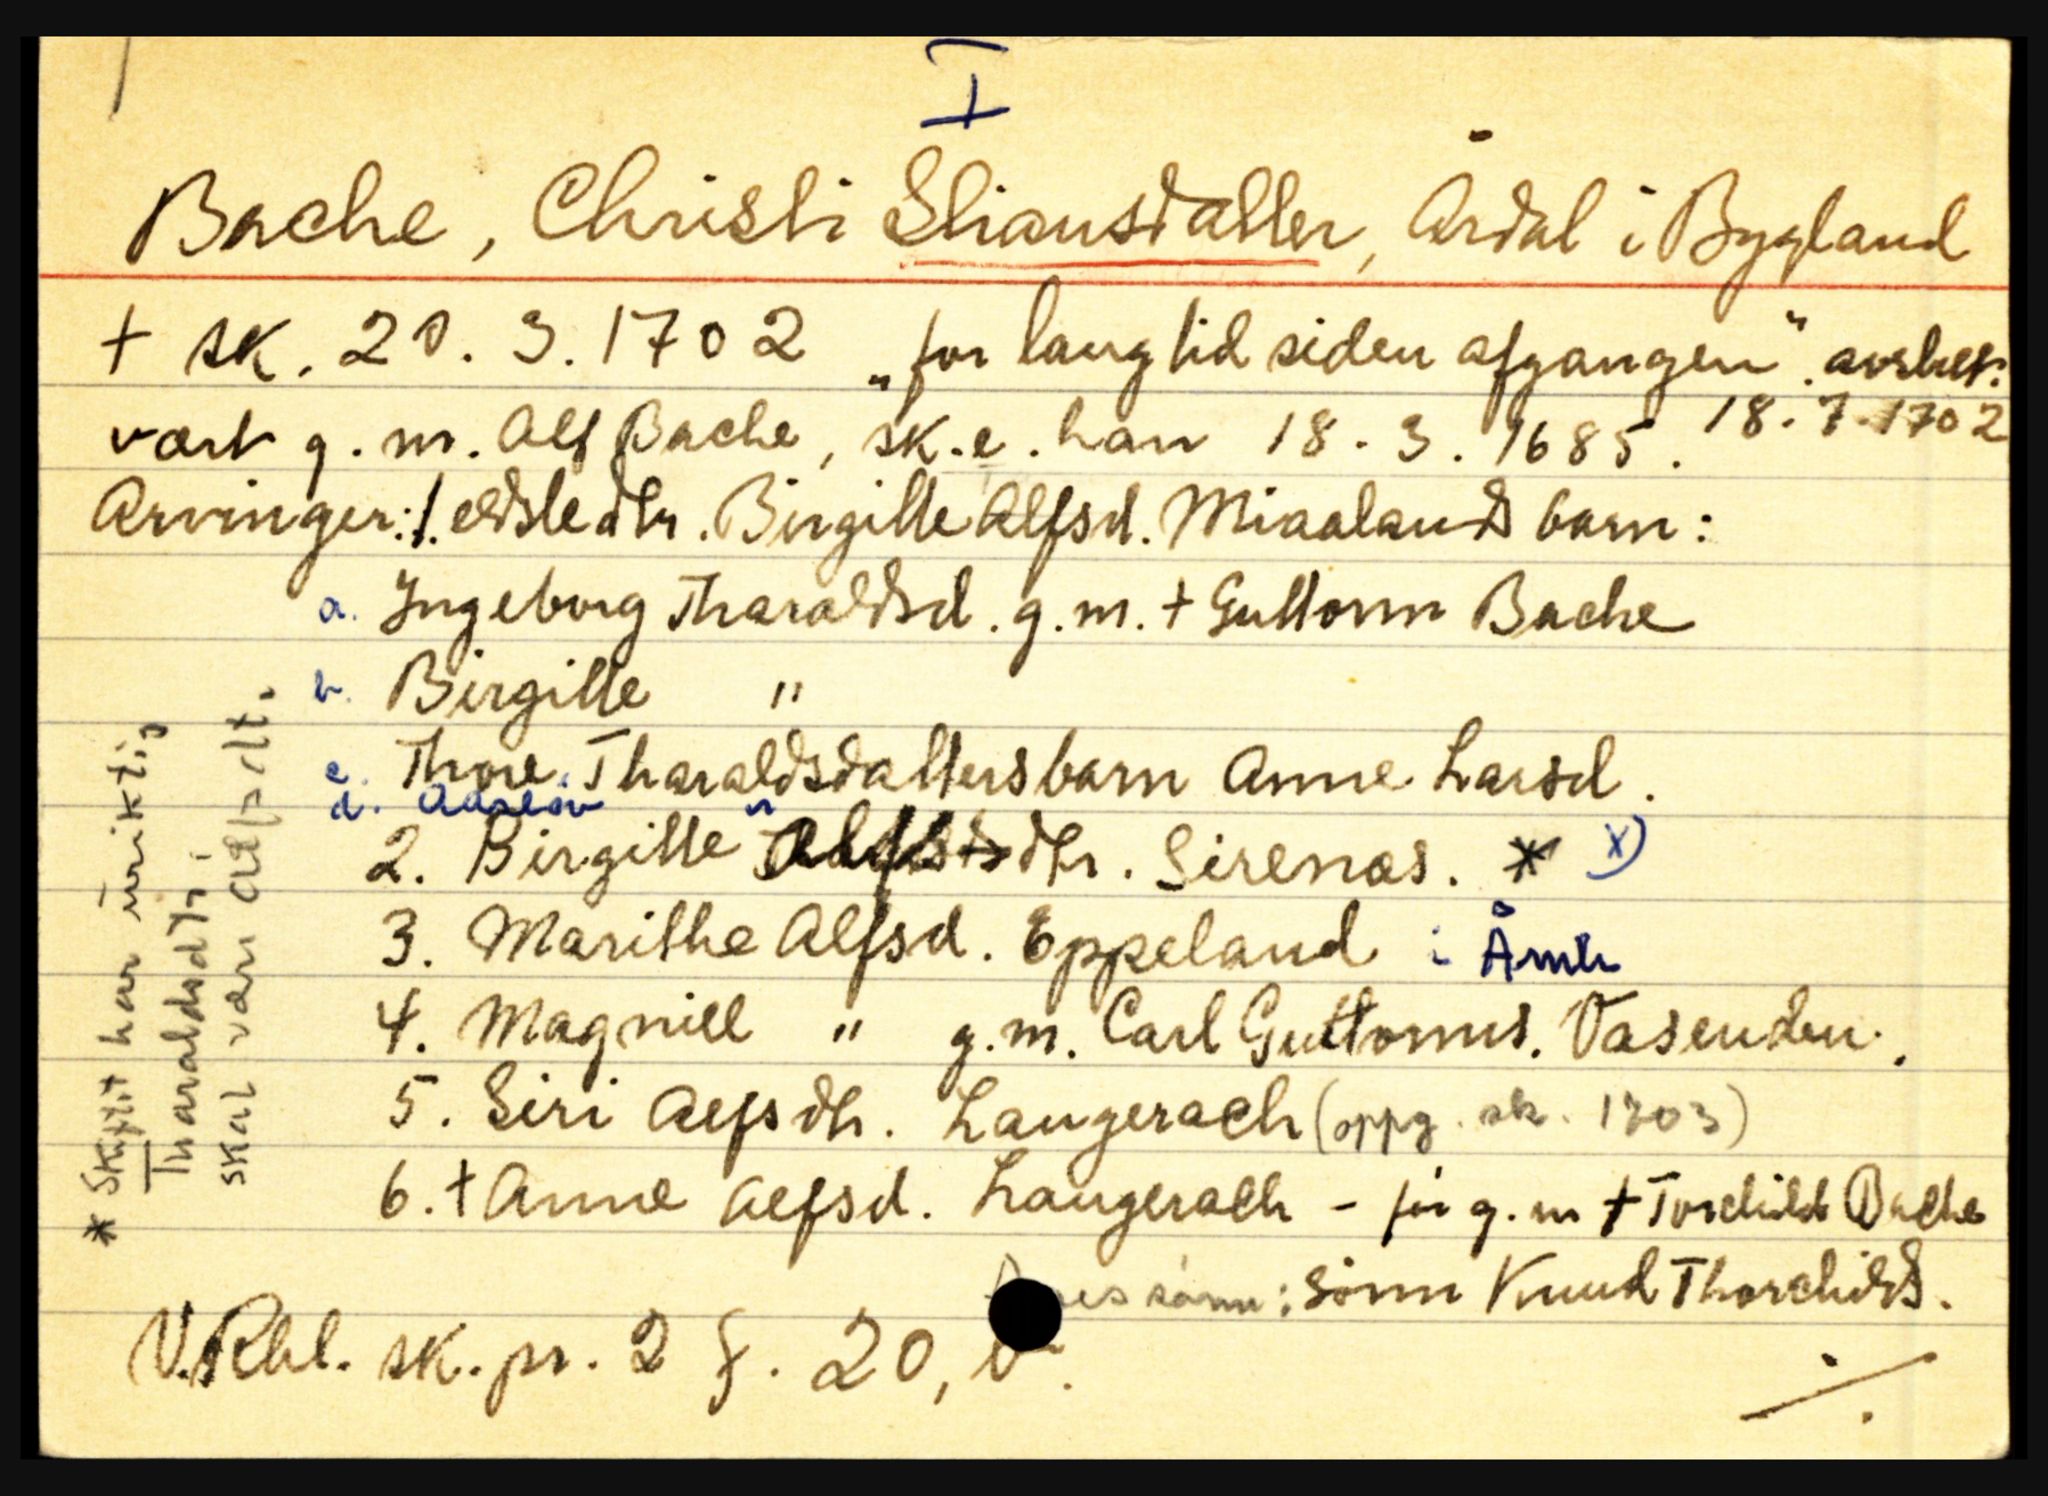 I
Bache, Christi Stiansdatter, Årdal i Bygland
† sk. 20. 3. 1702 „for lang tid siden afgangen". avslutt:
vært g. m. Alf Bache, sk. e. han 18. 3. 1685. 18. 7. 1702
Arvinger: 1. eldste dtr. Birgitte Alfsd. Miaalands barn:
a. Ingeborg Tharaldsd. g. m. † Guttorm Bache
b. Birgitte "
c. Thore Tharaldsdatters barn Anne Larsd.
d. Aaslov "
2. Birgitte Alfsdtr. Sirenæs. * x)
3. Marithe Alfsd. Eppeland i Åmli
4. Magnill " g. m. Carl Guttorms. Vasenden.
5. Siri Alfsdtr. Langerach (oppg. sk. 1703)
6. † Anne Alfsd. Langerach - før g. m † Torchild Bache
sønn: sønn Knud Thorchilds.
V. Rbl. sk. pr. 2 f. 20, b.
* Skiftet har uriktig
Tharaldsdtr;
skal være Alfsdt.